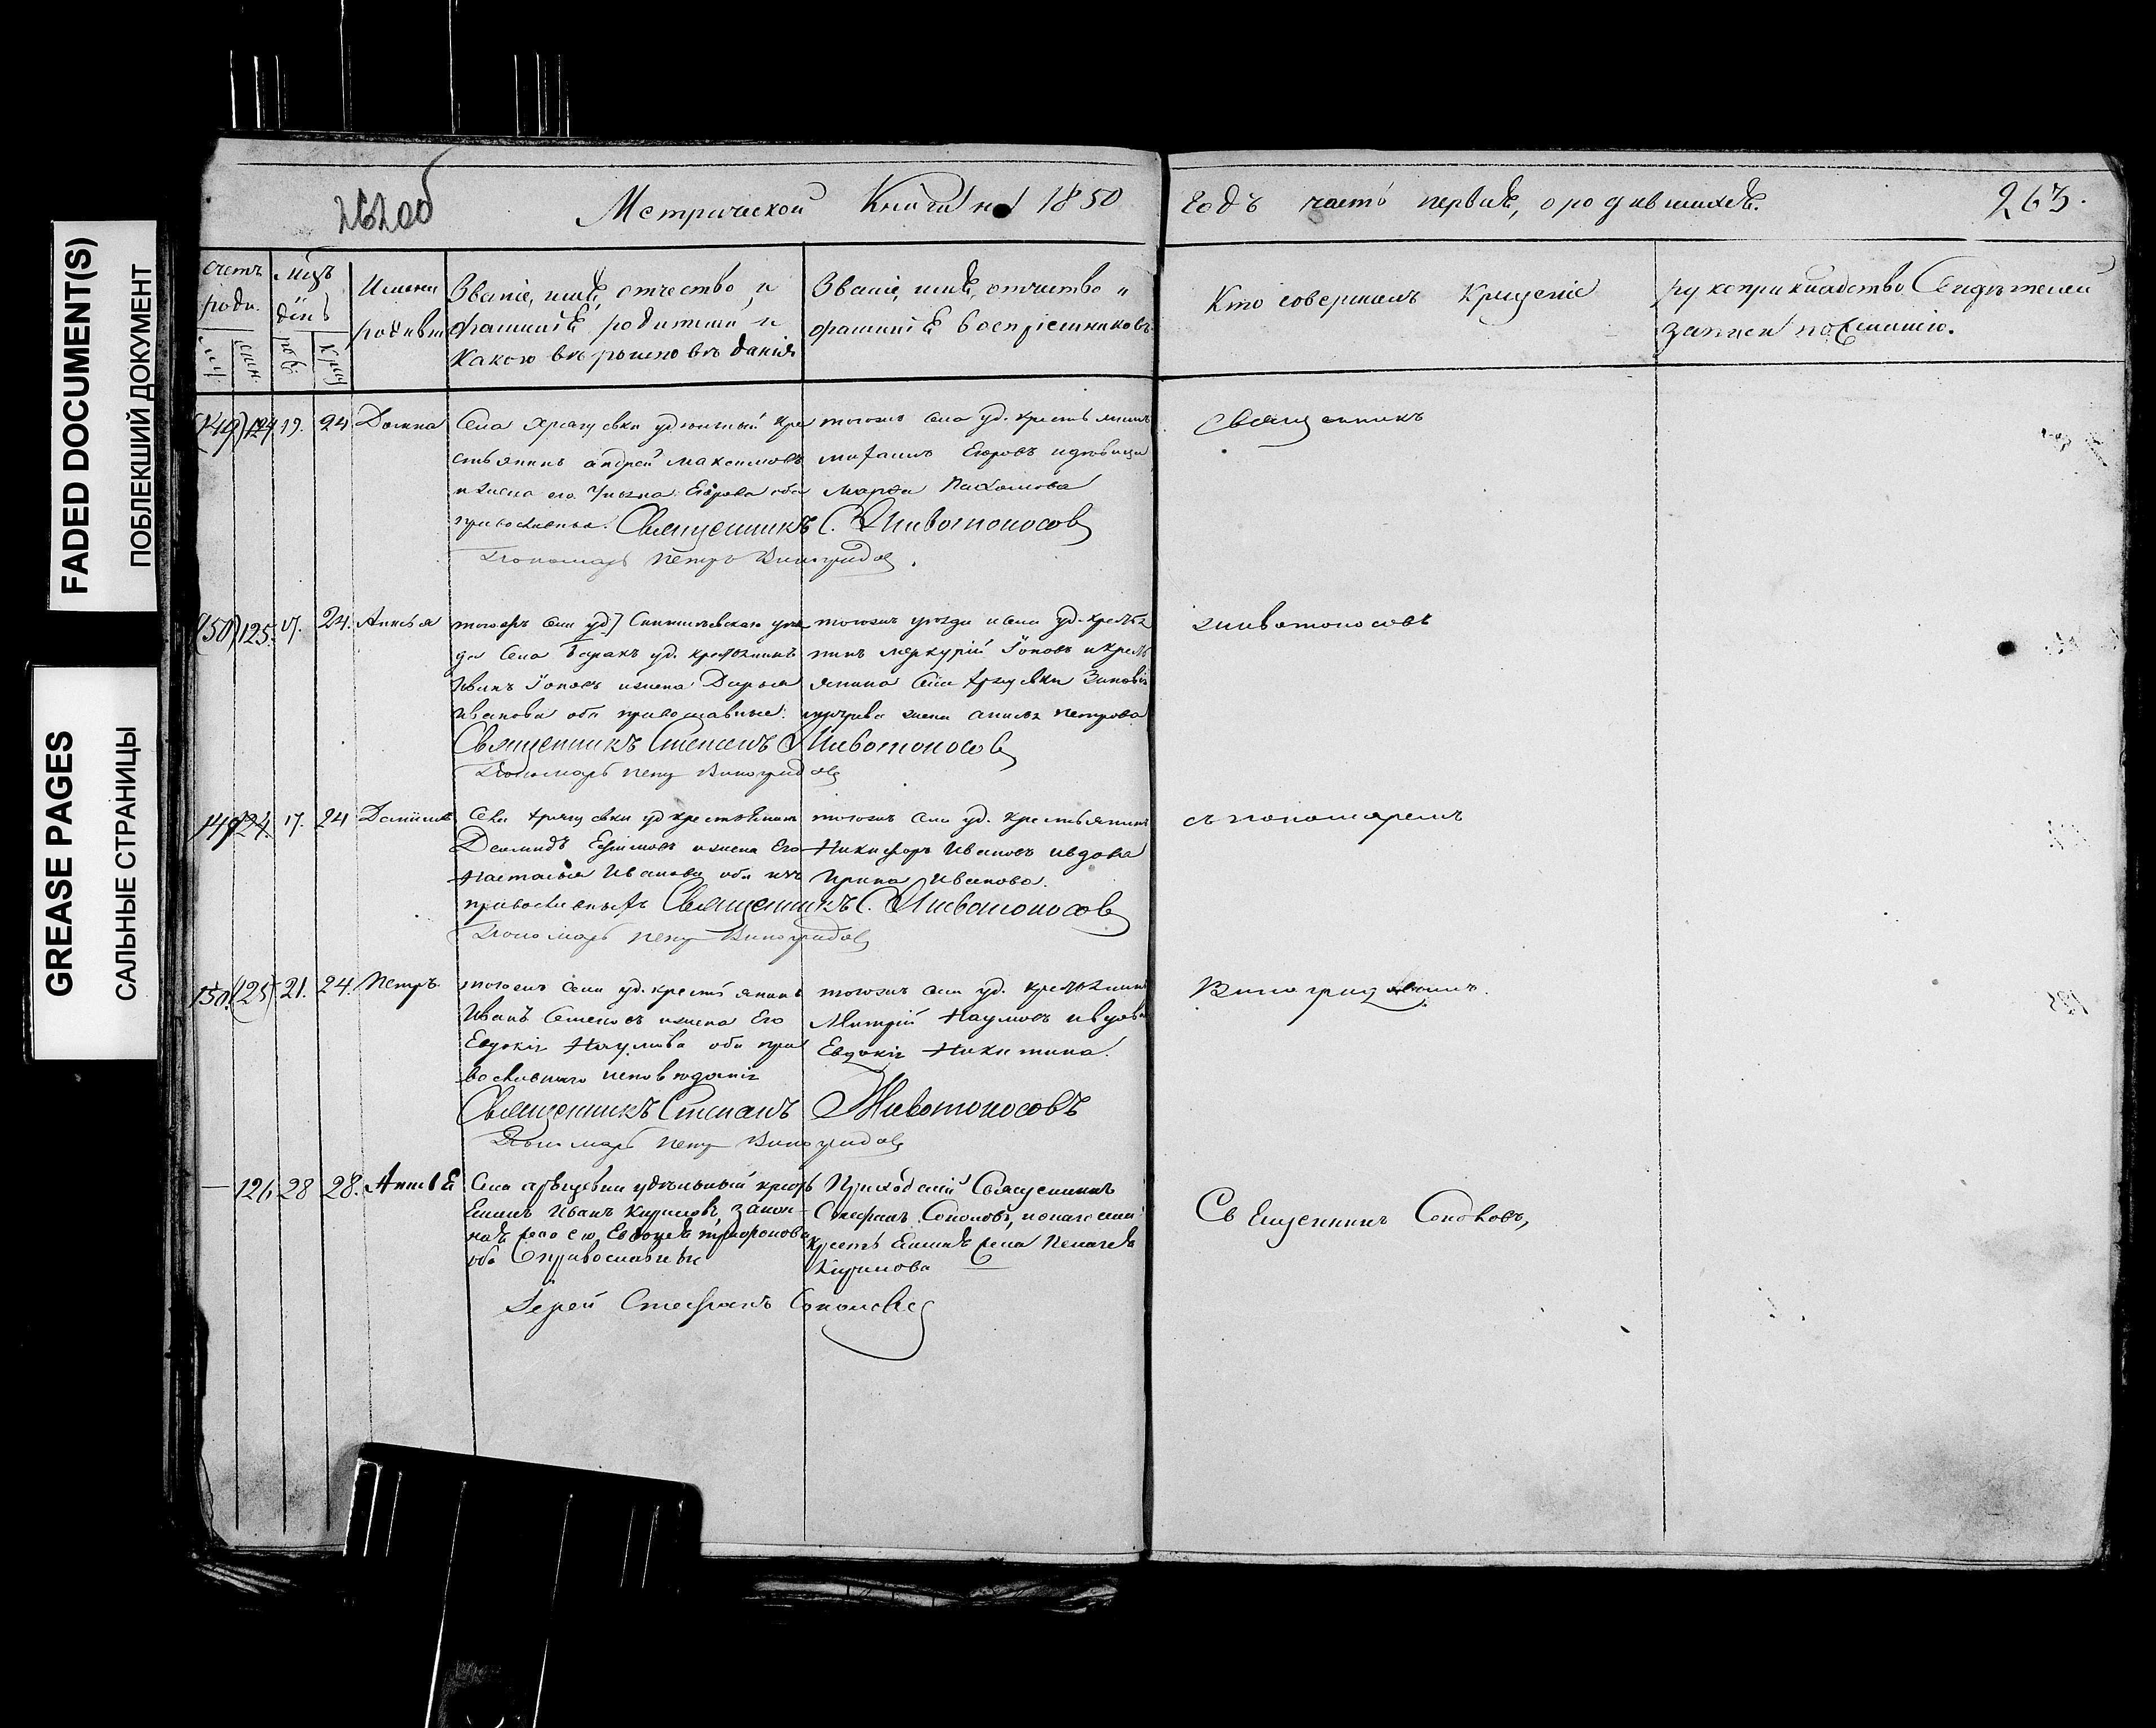 FADED DOCUMENT(S)
ПОБЛЕКШИЙ ДОКУМЕНТ
GREASE PAGES
САЛЬНЫЕ СТРАНИЦЫ
262 об
Метрической Книги на 1850
годъ часть первая, о родившихся.
263.
счетъ роди.
мцъ день
рожд. Крещ
Имена родивши
Званіе, имя, отчество, и
фамилія родителей и
какого вероисповеданія
Званіе, имя, отчество и
фамилія воспріемниковъ
Кто совершалъ Крещеніе
рукоприкладство Свидетелей
записи по желанію.
(149) 124 19. 24 Домна
Села удельный кре
стьянинъ андрей максимовъ
и жена его Егорова оба
православные. Священникъ С. Животоносов
Пономарь Петръ Виноградов.
тогожъ села уд. крестьянинъ
михаилъ Егоровъ и девица
марфа Пахомова
Священникъ
(150) 125. 17. 24. Анисья
уд. крестьянинъ
Иванъ Іоновъ и жена Дарья
Иванова оба православные.
Священникъ Степанъ Животоносов
Пономарь Петръ Виноградов
тогожъ уезда и села уд. кресть
нинъ меркурій Іоновъ и крест
янина села Зиновія
жена анисья петрова
животоносовъ
149 124. 17. 24 Даніилъ
Села уд крестьянинъ
Демидъ Ефимовъ и жена Его
Настасья Иванова оба ихъ
православныхъ Священникъ С. Животоносов
Пономарь Петръ Виноградов
тогожъ села уд. крестьянинъ
Никифоръ Ивановъ и вдова
Ирина Иванова.
съ пономаремъ
150. (125) 21. 24. Петръ
тогожъ села уд. крестьянинъ
Иванъ Семеновъ и жена Его
Евдокія Наумова оба пра
вославнаго исповеданія
Священникъ Степанъ Животоносовъ
Пономарь Петръ Виноградов
тогожъ села уд. крестьянинъ
Дмитрій Наумовъ и вдова
Евдокія Никитина.
Виноградовымъ.
— 126 28 28.
Села удельный кресть
янинъ Иванъ Кириловъ, закон-
ная жена его,
оба православные
Іерей Стефанъ Соколовъ
Приходскій Священникъ
Стефанъ Соколовъ,
крестьянина жена Пелагея
Кирилова
Священникъ Соколовъ,